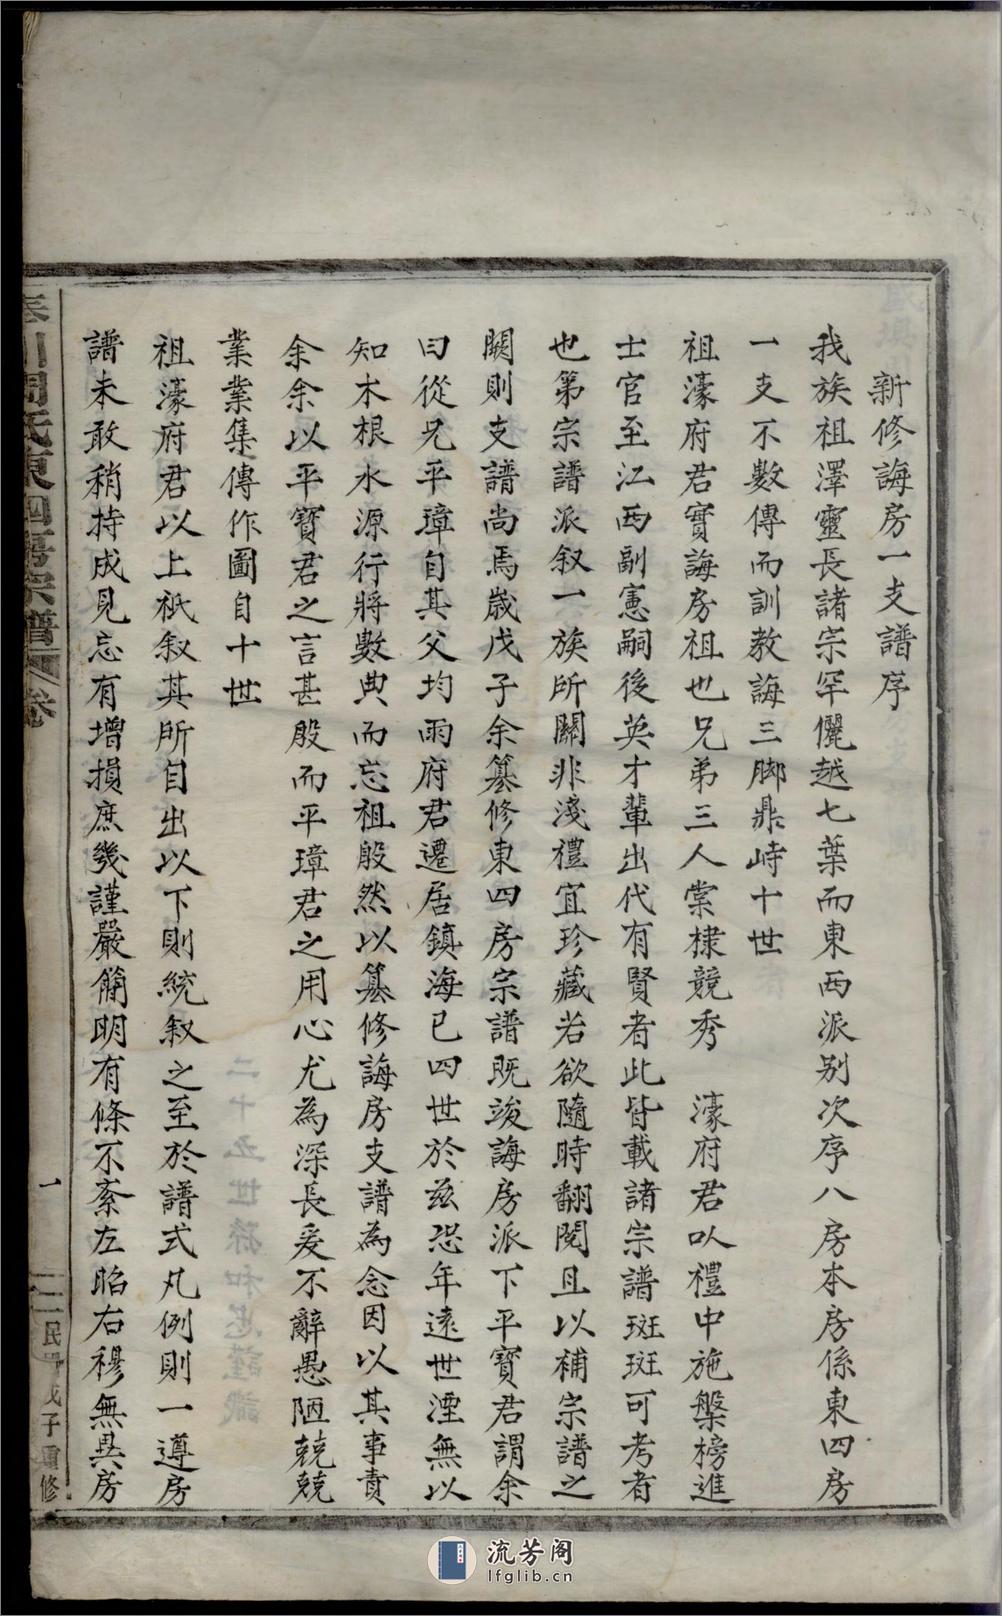 新修誨房一支譜序
我族祖澤靈長諸宗罕儷越七葉而東西派别次序八房本房係東四房
一支不數傳而訓教誨三脚鼎峙十世
祖濠府君實誨房祖也兄弟三人棠棣競秀　濠府君以禮中施槃榜進
士官至江西副憲嗣後英才輩出代有賢者此皆載諸宗譜斑斑可考者
也第宗譜派叙一族所關非淺禮宜珍藏若欲隨時翻閱且以補宗譜之
闕則支譜尚焉歲戊子余纂修東四房宗譜既竣誨房派下平寶君謂余
曰從兄平璋自其父均雨府君遷居鎮海已四世於兹恐年遠世湮無以
知木根水源行將數典而忘祖殷然以纂修誨房支譜為念因以其事責
余余以平寶君之言甚殷而平璋君之用心尤為深長爰不辭愚陋兢兢
業業集傳作圖自十世
祖濠府君以上祇叙其所自出以下則統叙之至於譜式凡例則一遵房
譜未敢稍持成見忘有增損庶幾謹嚴簡明有條不紊左昭右穆無異房
川周氏東四房宗譜 卷
一
民國戊子重修
流芳阁
lfglib.cn